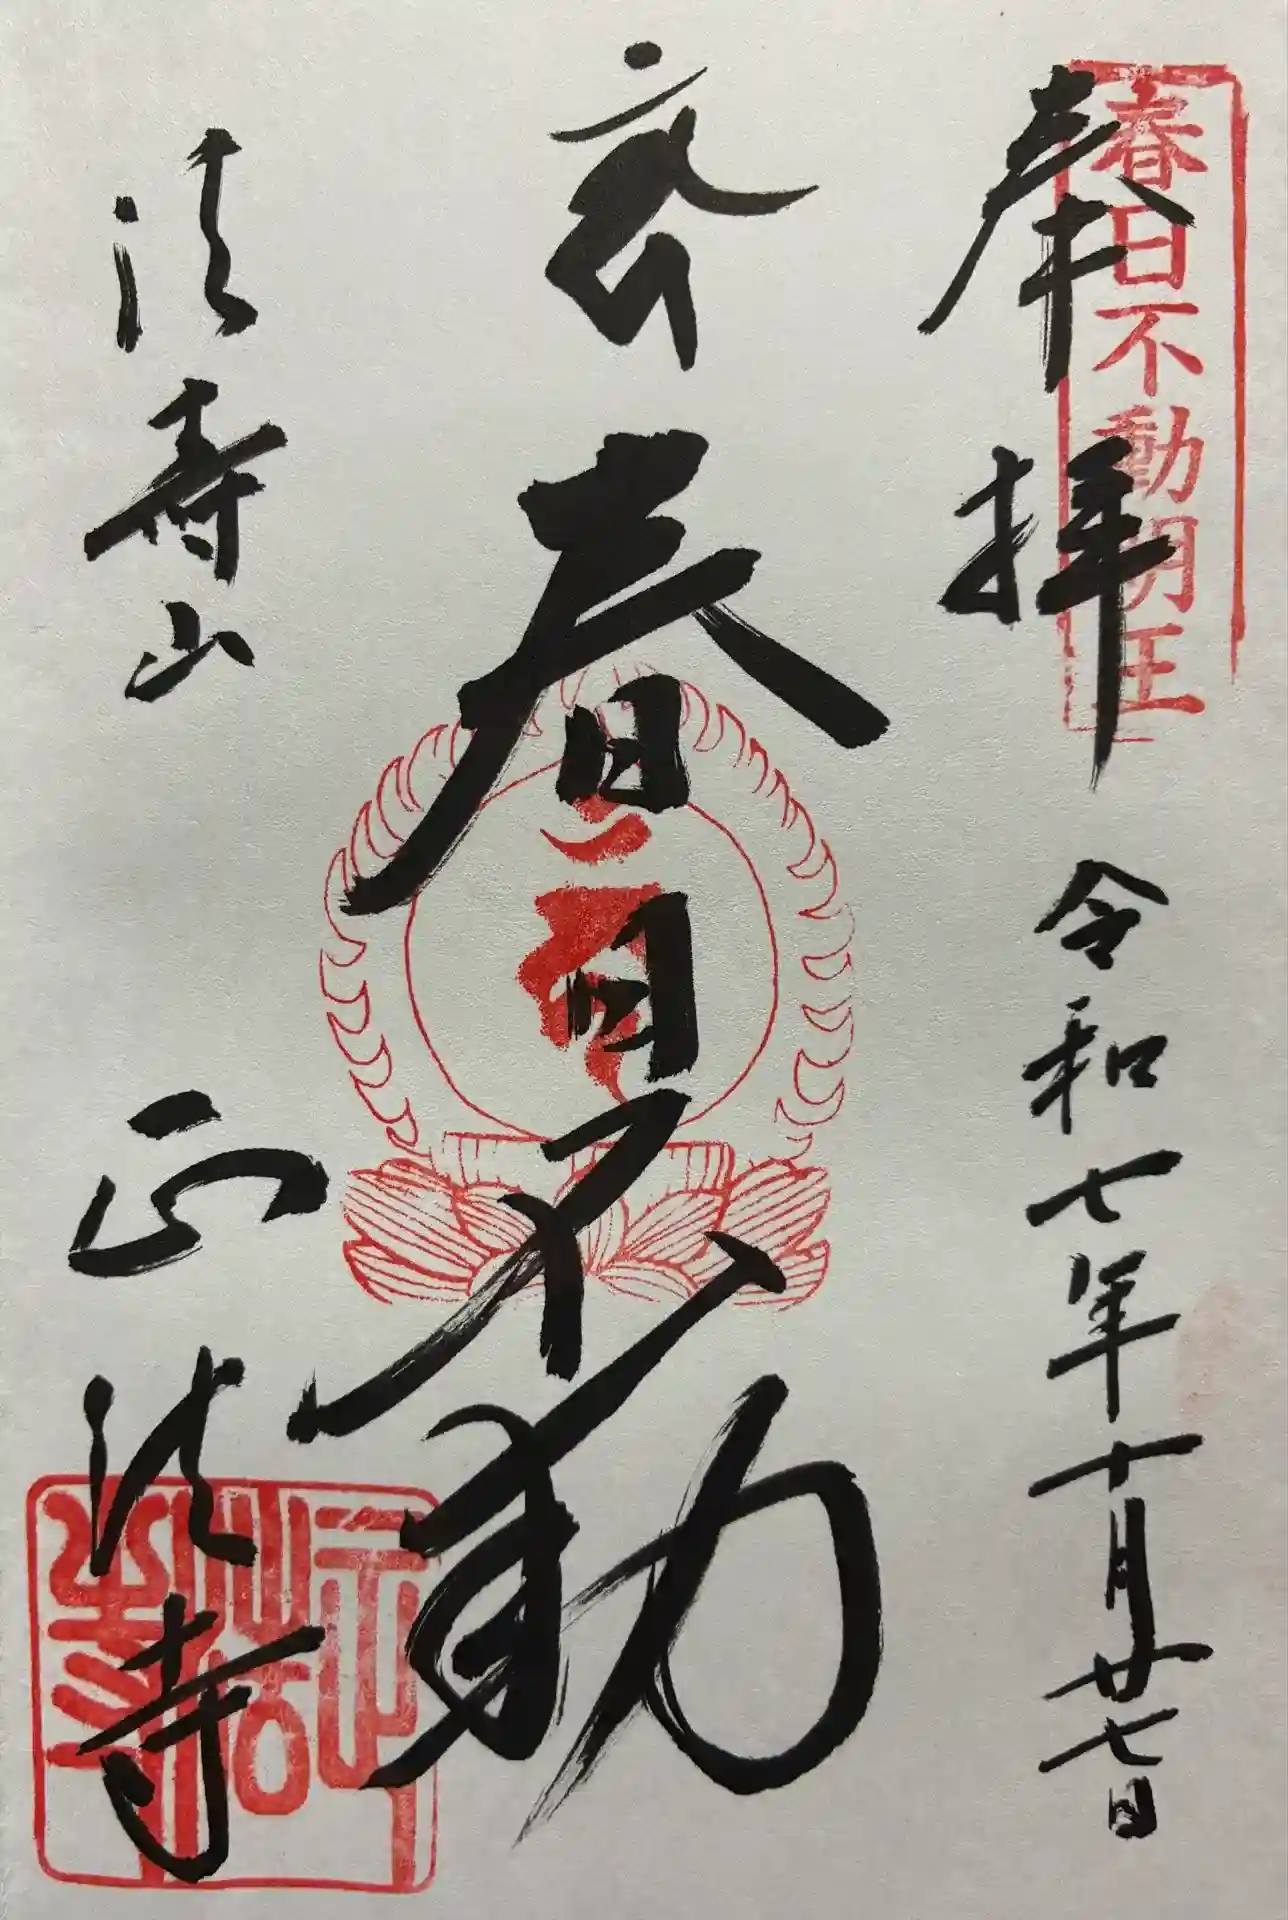 春日不動明王
奉拝
令和七年十月廿七日
春日不動
法壽山
正法寺